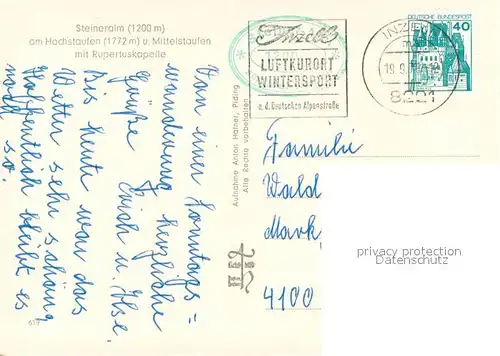 Steineralm (1200 m)
am Hochstaufen (1772 m) u. Mittelstaufen
mit Rupertuskapelle
Von einer Sonntags=
wanderung herzliche
Grüße Erich u. Ilse
Bis heute war das
Wetter sehr schön
Hoffentlich bleibt es
so.
619
Aufnahme Anton Hafner, Piding
Alle Rechte vorbehalten
Inzell
LUFTKURORT
WINTERSPORT
a. d. Deutschen Alpenstraße
INZELL
19.9.
8221
DEUTSCHE BUNDESPOST
40
Familie
Wald
Mark
4100
privacy protection
Datenschutz